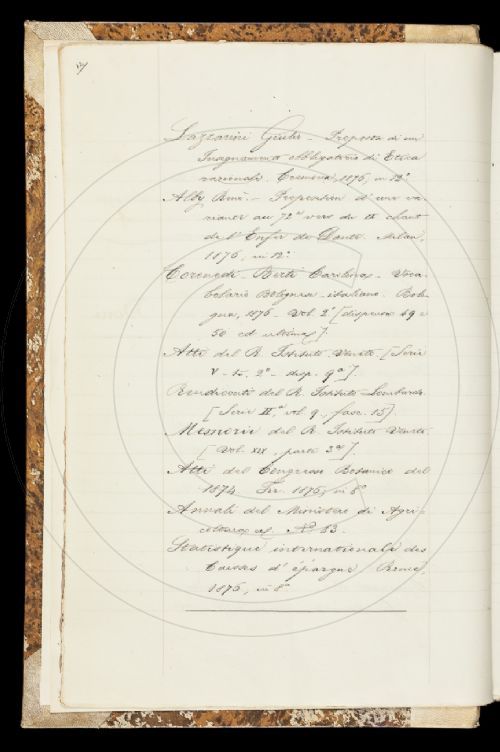 12/
Lazzarini Giulio - Proposta di un
Insegnamento obbligatorio di Etica
razionale. Cremona, 1876, in 12°
Alby René. - Proposition d'une va-
riante au 72e vers du chant
de l'Enfer de Dante. Milan
1876, in 12°.
Coronedi-Berti Carolina. Voca-
bolario Bolognese-italiano. Bolo-
gna, 1876. Vol. 2° [dispense 49 e
50 ed ultima].
Atti del R. Istituto Veneto. [Serie
V - to. 2° - disp. 9a].
Rendiconti del R. Istituto Lombardo.
[Serie II,a vol 9., fasc. 15].
Memorie del R. Istituto Veneto.
[Vol. XIX, parte 3a].
Atti del Congresso Botanico del
1874. Fir. 1876, in 8°
Annali del Ministero di Agri-
coltura N° 83.
Statistique internationale des
Caisses d'épargne. Rome,
1876, in 8°